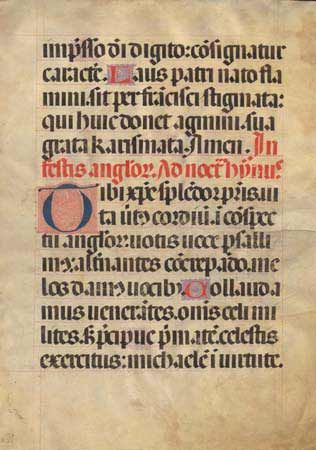 imp̄sso dī digito: cōsignatur
caractē. Laus patri nato fla
mini. sit per frācisci stigmata:
qui huic donet agmini. sua
grata karismata. Amen. In
festis anglor̄. Ad noct̄ hȳnus
Tibi xp̄e splēdor pr̄is. ui
ta ūt̄ cordiū. ī cōspec
tu anglor̄: uotis uoce psalli
m⁹. alt̄nantes cōcrepādo. me
los dam⁹ uocib⁹ Collauda
mus uenerātes. on̄is celi mi
lites. s; p̄cipue p̄matē. celestis
exercitus: michaelē ī uirtute.